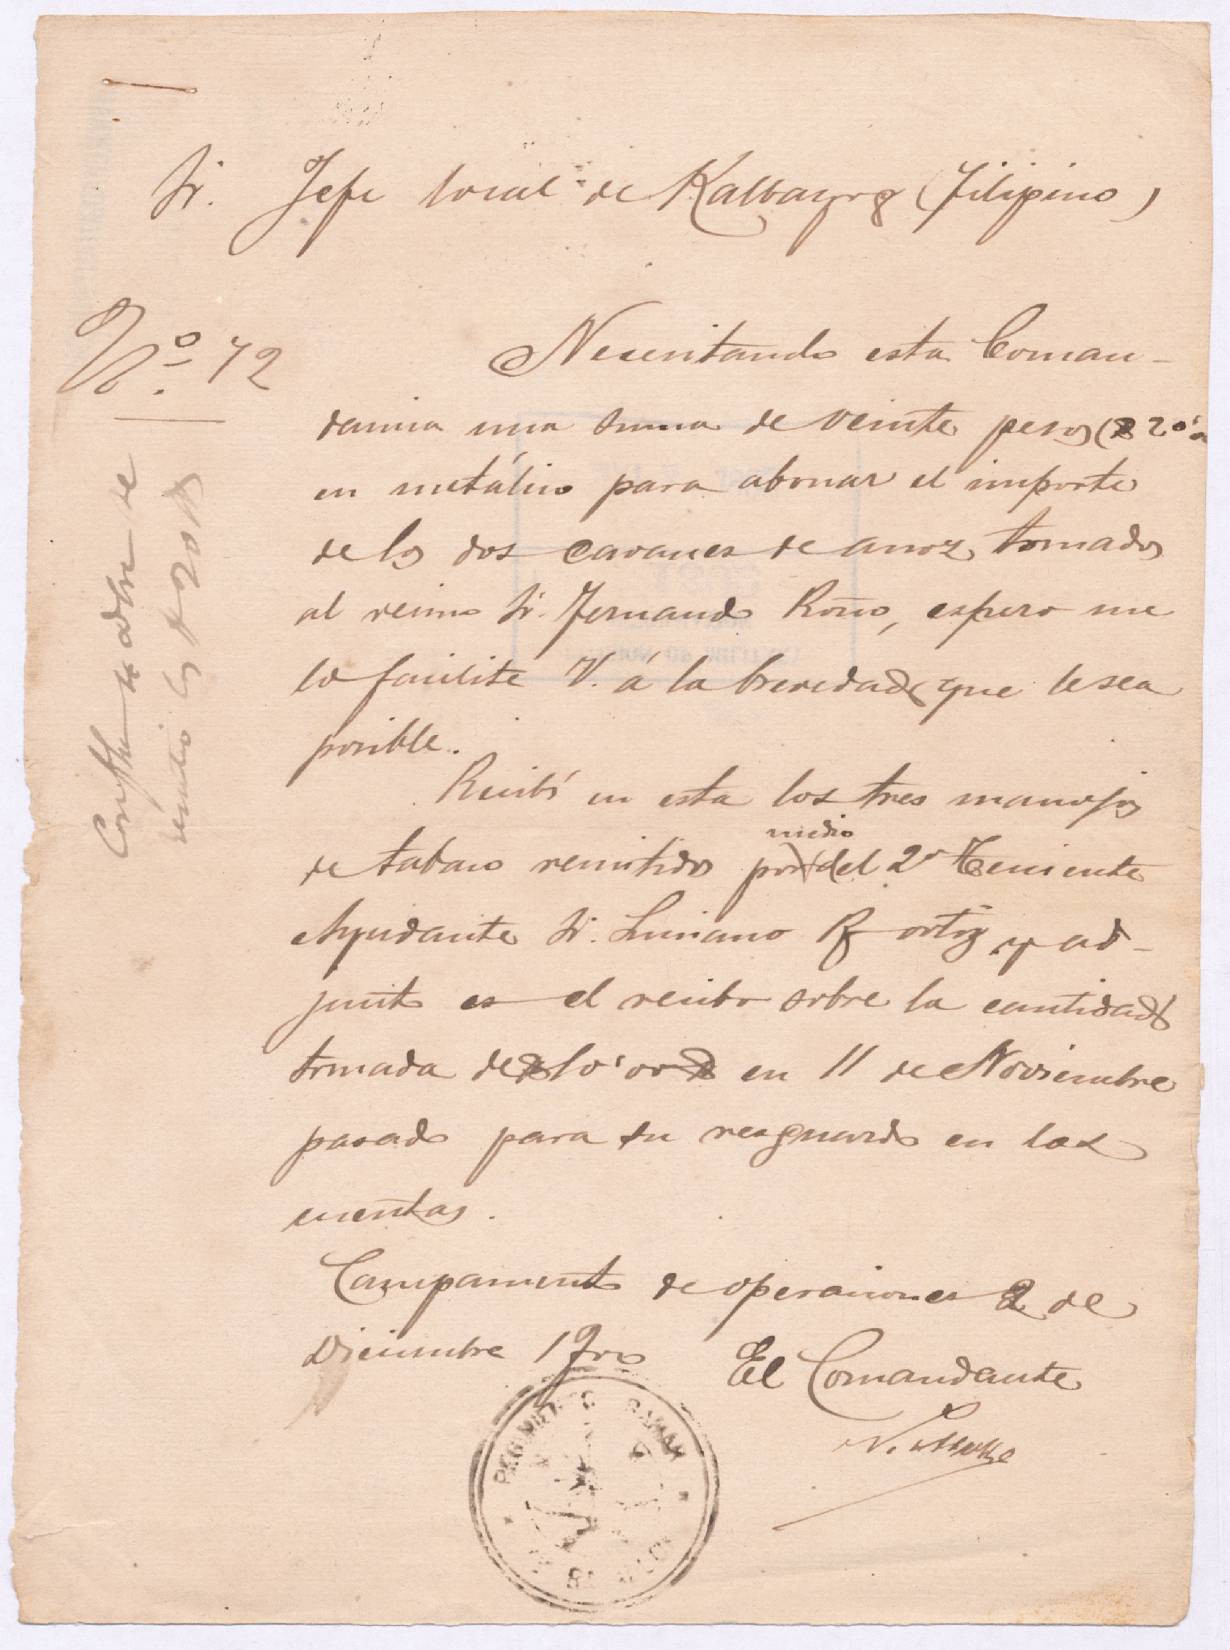 Sr. Jefe local de Kalbayog (Filipino)
Nº. 72
Necesitando esta Coman-
dancia una suma de veinte pesos (20
en metálico para abonar el importe
de los dos cavanes de arroz tomados
al vecino Sr. Fernando Roño, espero me
lo facilite V. á la brevedad que le sea
posible.
Recibí en esta los tres manojos
de tabaco remitidos por medio del 2º Teniente
Ayudante Sr. Luciano R Ortiz y ad-
junto es el recibo sobre la cantidad
tomada de 10'00 en 11 de Noviembre
pasado para su resguardo en las
cuentas.
Campamento de operaciones 2 de
Diciembre 1900
El Comandante
N.
SAMAR